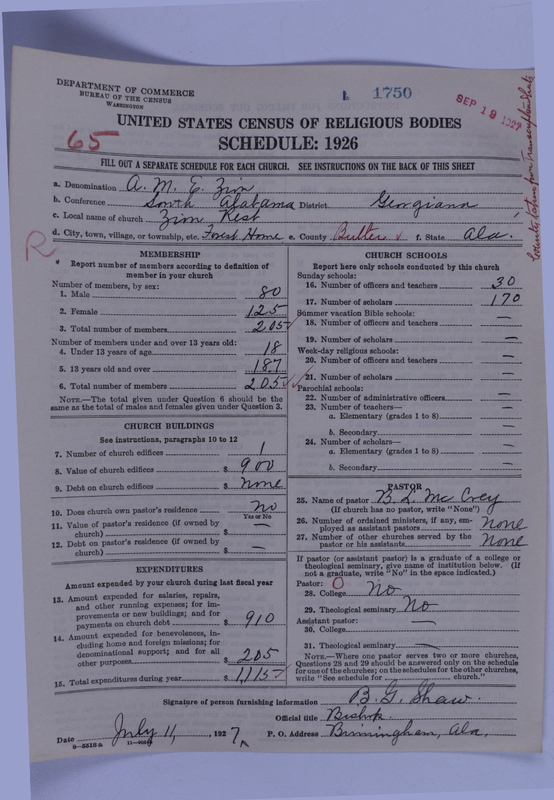 DEPARTMENT OF COMMERCE
BUREAU OF THE CENSUS
WASHINGTON
1750
SEP 19 1927
65
UNITED STATES CENSUS OF RELIGIOUS BODIES
SCHEDULE: 1926
FILL OUT A SEPARATE SCHEDULE FOR EACH CHURCH. SEE INSTRUCTIONS ON THE BACK OF THIS SHEET
a. Denomination A. M. E. Zion
b. Conference South Alabama District Georgiana
c. Local name of church Zion Rest
d. City, town, village, or township, etc. Forest Home e. County Butler f. State Ala.
R
MEMBERSHIP
Report number of members according to definition of
member in your church
Number of members, by sex:
1. Male 80
2. Female 125
3. Total number of members 205
Number of members under and over 13 years old:
4. Under 13 years of age 18
5. 13 years old and over 187
6. Total number of members 205
NOTE.—The total given under Question 6 should be the
same as the total of males and females given under Question 3.
CHURCH BUILDINGS
See instructions, paragraphs 10 to 12
7. Number of church edifices 1
8. Value of church edifices $ 900
9. Debt on church edifices $ none
10. Does church own pastor's residence no
Yes or No
11. Value of pastor's residence (if owned by
church) $ —
12. Debt on pastor's residence (if owned by
church) $ —
EXPENDITURES
Amount expended by your church during last fiscal year
13. Amount expended for salaries, repairs,
and other running expenses; for im-
provements or new buildings; and for
payments on church debt $ 910
14. Amount expended for benevolences, in-
cluding home and foreign missions; for
denominational support; and for all
other purposes $ 205
15. Total expenditures during year $ 1115
CHURCH SCHOOLS
Report here only schools conducted by this church
Sunday schools:
16. Number of officers and teachers 30
17. Number of scholars 170
Summer vacation Bible schools:
18. Number of officers and teachers —
19. Number of scholars —
Week-day religious schools:
20. Number of officers and teachers —
21. Number of scholars —
Parochial schools:
22. Number of administrative officers —
23. Number of teachers—
a. Elementary (grades 1 to 8) —
b. Secondary —
24. Number of scholars—
a. Elementary (grades 1 to 8) —
b. Secondary —
PASTOR
25. Name of pastor B. L. McCrey
(If church has no pastor, write "None")
26. Number of ordained ministers, if any, em-
ployed as assistant pastors None
27. Number of other churches served by the
pastor or his assistants None
If pastor (or assistant pastor) is a graduate of a college or
theological seminary, give name of institution below. (If
not a graduate, write "No" in the space indicated.)
Pastor: O
28. College No
29. Theological seminary No
Assistant pastor:
30. College —
31. Theological seminary —
NOTE.—Where one pastor serves two or more churches,
Questions 28 and 29 should be answered only on the schedule
for one of the churches; on the schedules for the other churches,
write "See schedule for church."
Signature of person furnishing information B. G. Shaw.
Official title Bishop
Date July 11, 1927 P. O. Address Birmingham, Ala.